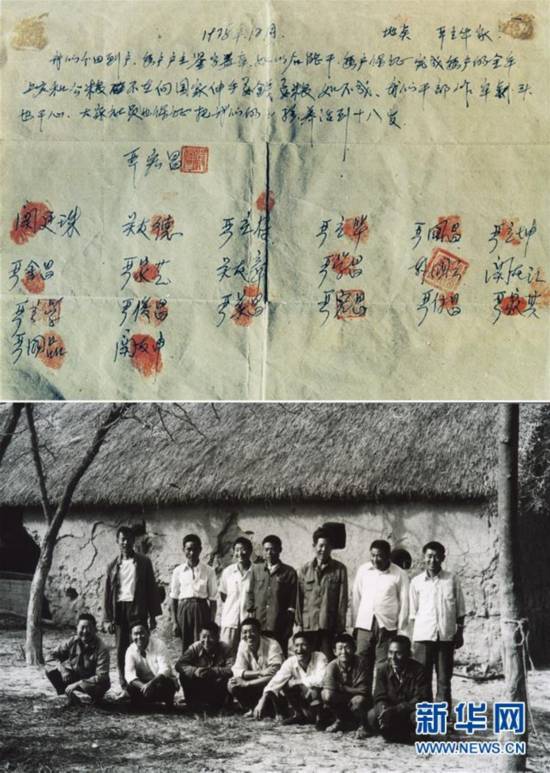 1978年12月. 地点 严立华家.
我们分田到户, 每户户主签字盖章, 如以后能干, 每户保证完成每户的全年
上交和公粮 不在向国家伸手要钱要粮. 如不成, 我们干部作牢杀头
也干心, 大家社员也保证把我们的小孩养活到十八岁
严宏昌
关廷珠 关友德 严立符 严立华 严国昌 严立坤
严金昌 严家芝 关友章 严学昌 韩国云 关友江
严立学 严俊昌 严美昌 严宏昌 严付昌 严家其
严国品 关友申
新华网
WWW.NEWS.CN